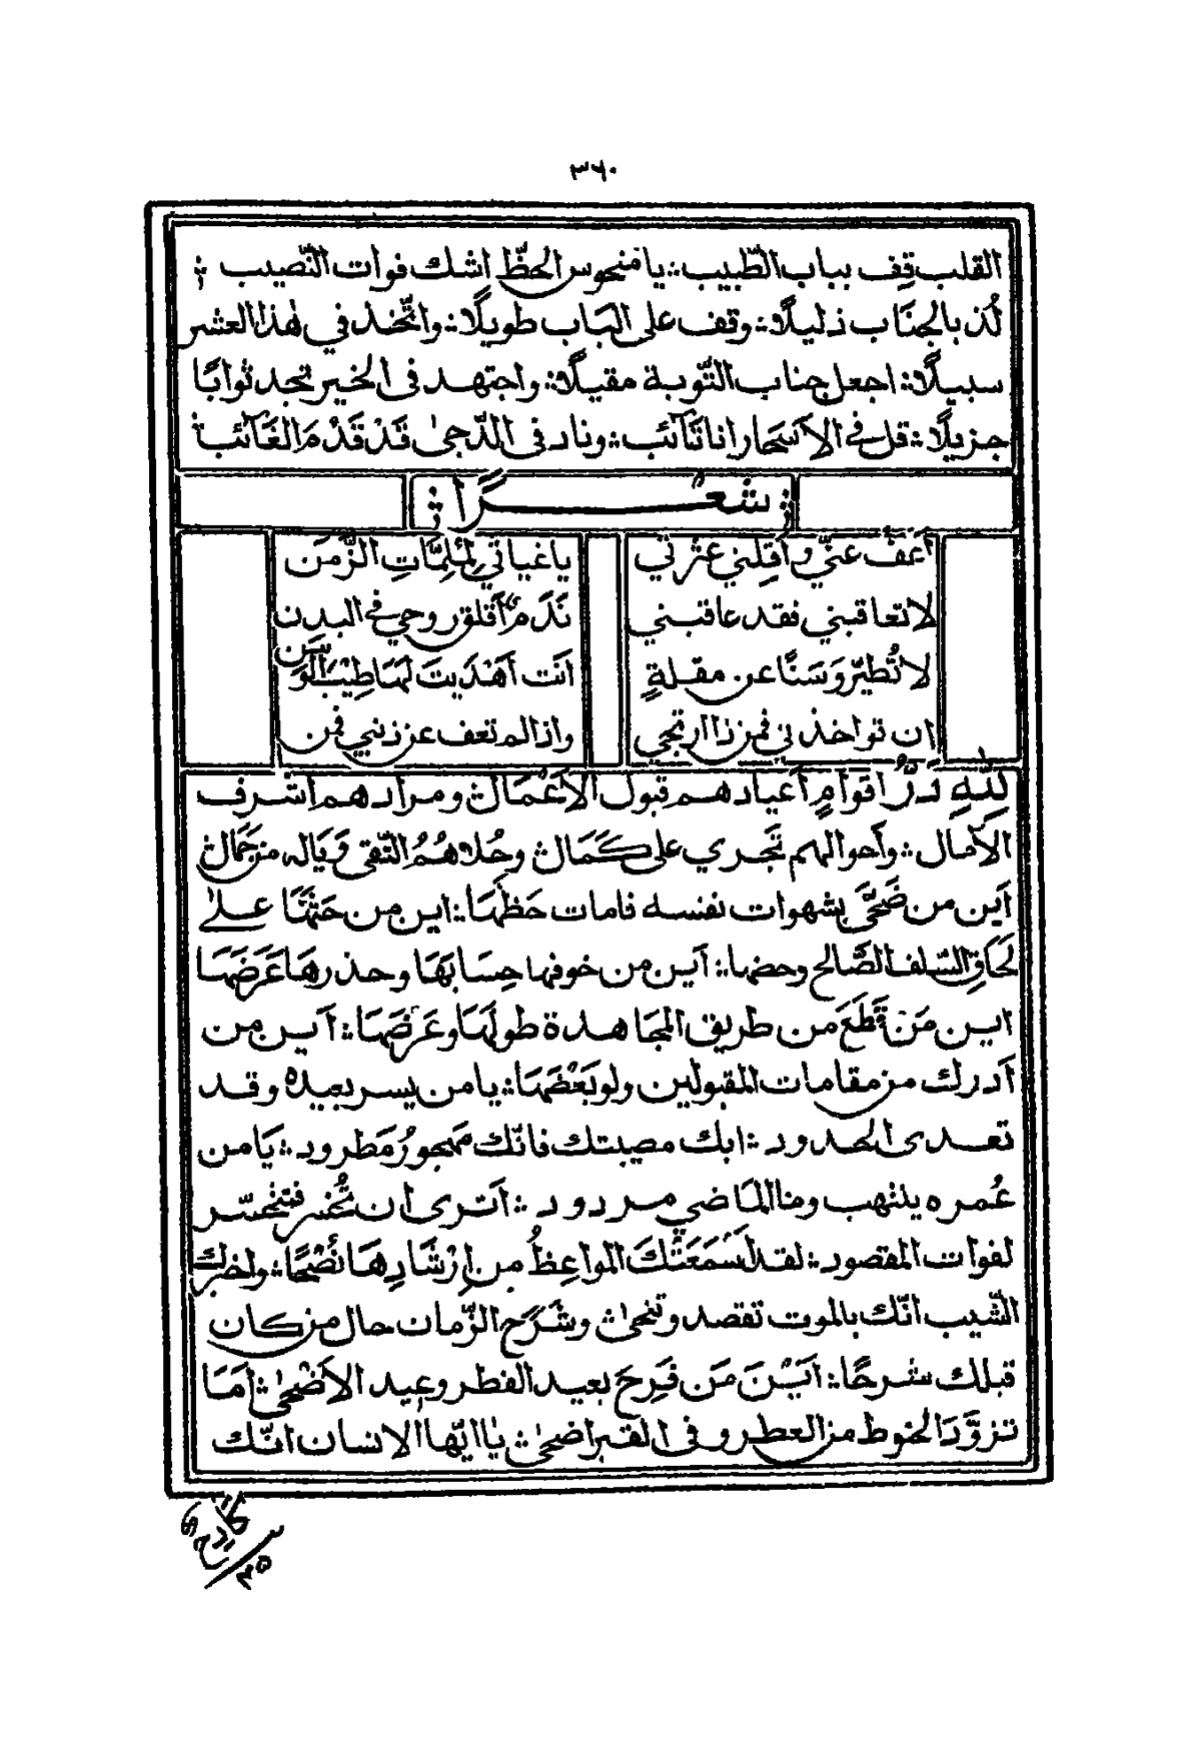 ٣٦٠
القلب قِف بباب الطّبيب ؞ يا منحوس الحظّ اشك فوات النّصيب ؞
لُذ بالجنَاب ذليلًا ؞ وقف على البَاب طويلًا ؞ واتّخذ في هٰذا العشر
سبيلًا ؞ اجعل جناب التّوبة مقيلًا ؞ واجتهد فى الخير تجد ثوابًا
جزيلًا ؞ قل في الاَسحار انا تَآئب ؞ وناد فى الدّجىٰ قَدْ قَدْمَ الغَآئب ؞
؞ شعْرًا ؞
اُعفُ عنّي واَقِلني عثرتي يا غياثي لِمُلِمَّاتِ الزَّمَن
لا تعاقبني فقد عاقبني نَدَمٌ اَقلق روحي في البدن
لا تُطيّر وَسَنًا عن مقلةٍ انت اَهْدَيتَ لهَا طِيْبَ الوَسَن
ان تواخذني فمن ذا ارتجي واذا لم تعف عن ذنبي فمن
لِلّٰهِ دَرُّ اَقوَامٍ اَعيادهم قبول الاَعْمَال ؞ ومرادهم اشرف
الآمال ؞ واَحوالهم تَجري على كَمَال ؞ وحُلاهُمُ التّقى وَيَاله من جَمَال ؞
اَين من ضَحَّى بشهوات نفسه فامات حَظّهَا ؞ اين من حَثَّنَا علىٰ
لحَاقِ السّلف الصَّالح وحضها ؞ اَين من خوفها حِسَابَهَا وحذرها عَرَضَهَا
اين مَن قَطَعَ من طريق المجَاهدة طولهَا وعَرضَهَا ؞ اَين من
اَدرك من مقامات المقبولين ولو بَعْضَهَا ؞ يا من يسر بعيده وقد
تعدى الحدود ؞ ابك مصيبتك فانّك مَهجورٌ مَطرود ؞ يَا من
عُمره يلتهب وما الماضي مردود ؞ اَترى ان تُخسر فتتحسّر
لفوات المقصود ؞ لقد اَسْمَعَتْكَ المواعِظُ من اِرْشَادِهَا نُصْحًا ؞ واخبرك
الشّيب انّك بالموت تقصد وتنحىٰ ؞ وشَرَح الزّمان حال من كان
قبلك شرحًا ؞ اَيْنَ مَن فَرِحَ بعيد الفطر وعيد الاَضْحىٰ ؞ اَمَا
تزوَّدَ الحنوط من العطر وفى القبر اضحىٰ ؞ يٰا ايّها الانسان انّك